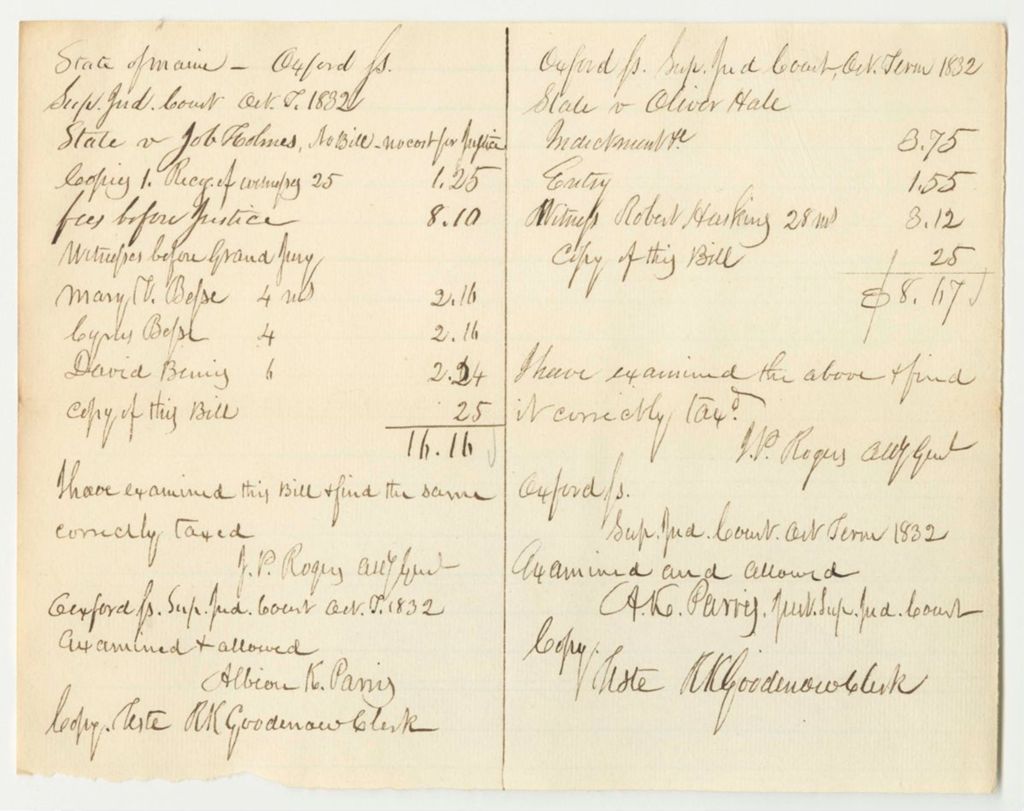 State of Maine – Oxford ss.
Sup. Jud. Court Oct. T. 1832
State v Job Holmes, No Bill – no cost for Justice
Copies 1. Recg. of witnesses 25 1.25
fees before Justice 8.10
Witnesses before Grand Jury
Mary Besse 4 ms 2.16
Cyrus Besse 4 2.16
David 6 2.24
Copy of this Bill 25
16.16
I have examined this Bill & find the same
correctly taxed
J. P. Rogers Atty Genl
Oxford ss. Sup. Jud. Court Oct. T. 1832
Examined & allowed
Albion K. Parris
Copy. Teste RK Goodenow Clerk
Oxford ss. Sup. Jud Court, Oct. Term 1832
State v Oliver Hale
Indictment &c 3.75
Entry 1.55
Witness Robert Haskins 28 ms 3.12
Copy of this Bill 25
$8.67
I have examined the above & find
it correctly taxd
J. P. Rogers Atty Genl
Oxford ss.
Sup. Jud. Court. Oct Term 1832
Examined and allowed
A. K. Parris. Just. Sup. Jud. Court
Copy.
Teste RK Goodenow Clerk